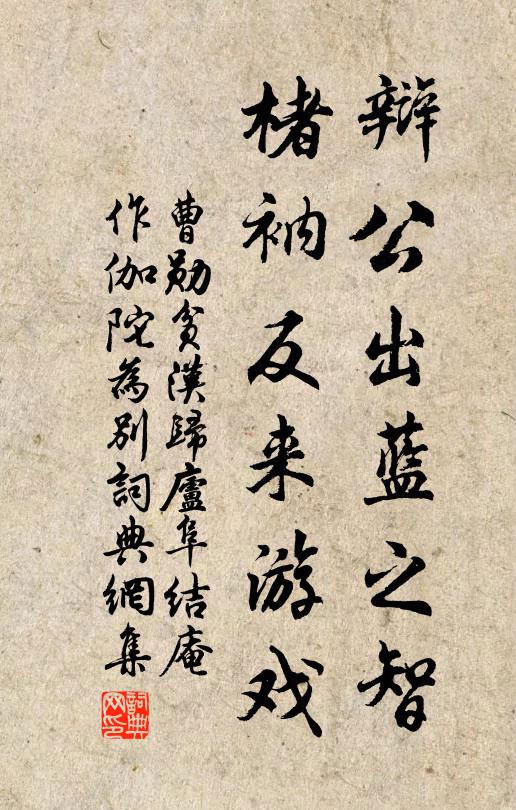 辩公出蓝之智
楮衲反来游戏
曹勋贫汉归庐阜结庵
作伽陀为别词典网集
詞典
网印